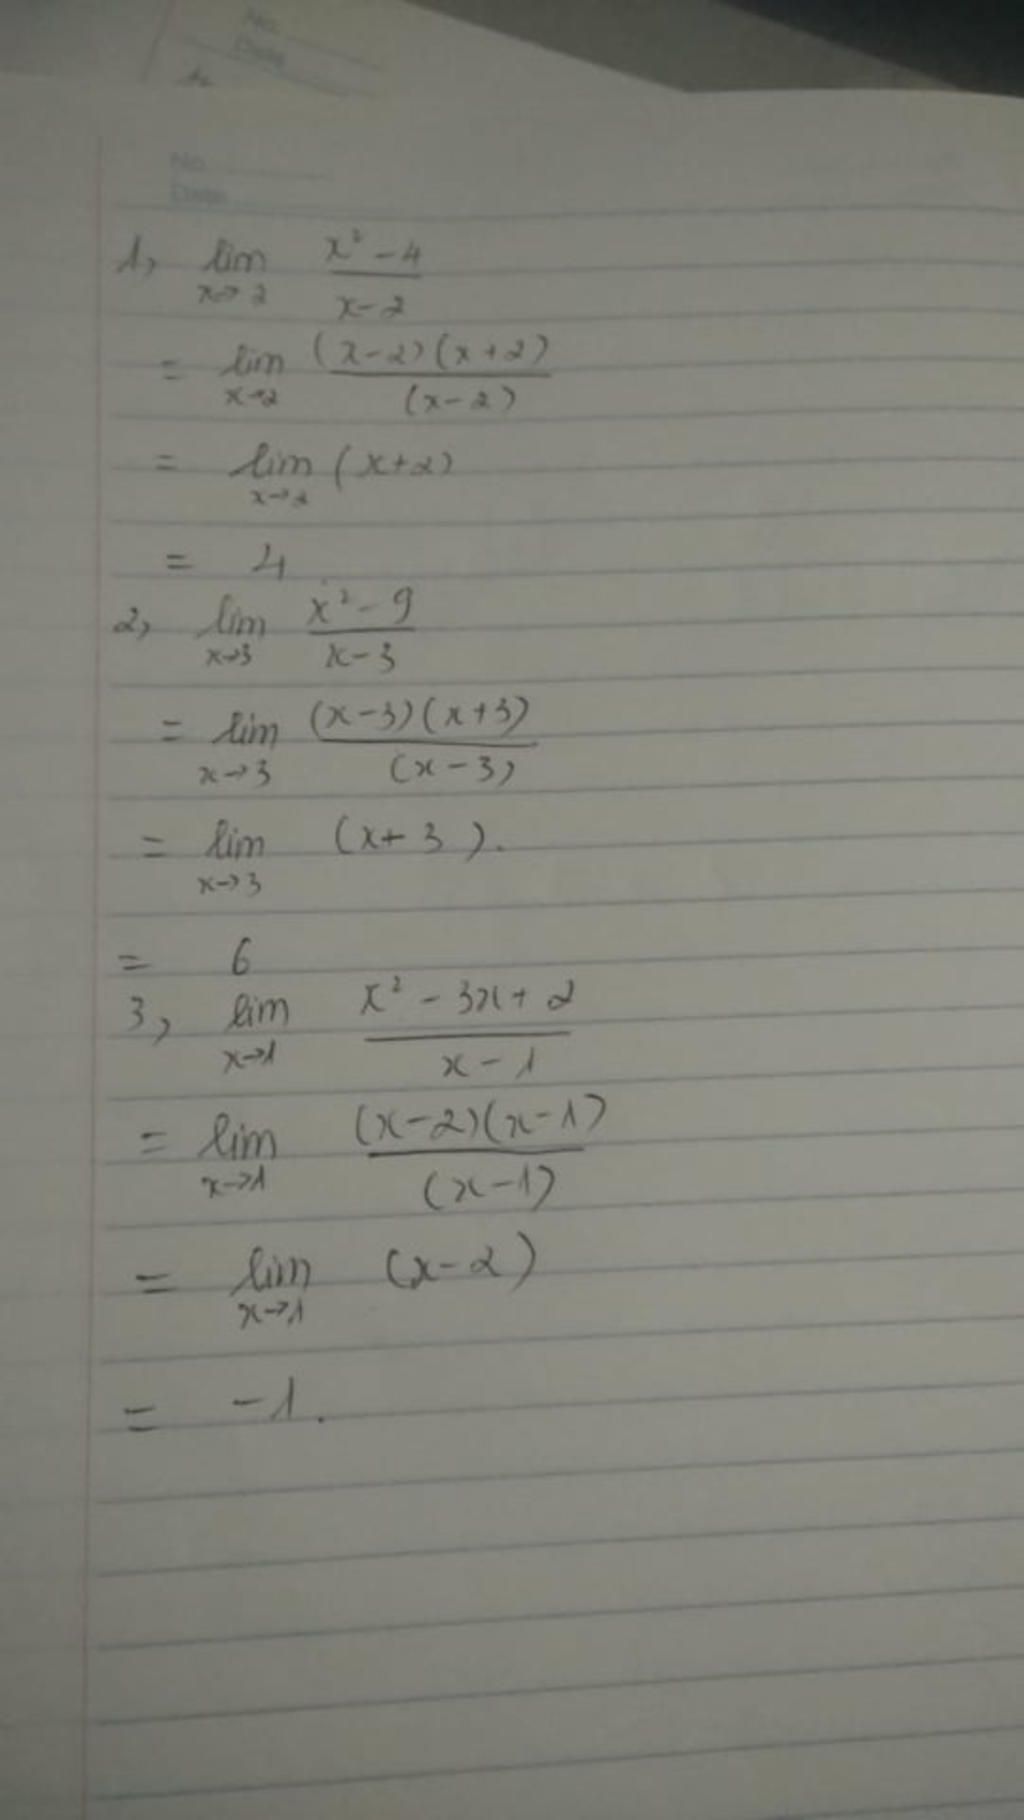 No.
Date
No.
Date
1, lim x→2 (x² - 4)/(x - 2)
= lim x→2 ((x-2)(x+2))/((x-2))
= lim x→2 (x+2)
= 4
2, lim x→3 (x² - 9)/(x - 3)
= lim x→3 ((x-3)(x+3))/((x-3))
= lim x→3 (x+3).
= 6
3, lim x→1 (x² - 3x + 2)/(x - 1)
= lim x→1 ((x-2)(x-1))/((x-1))
= lim x→1 (x-2)
= -1.